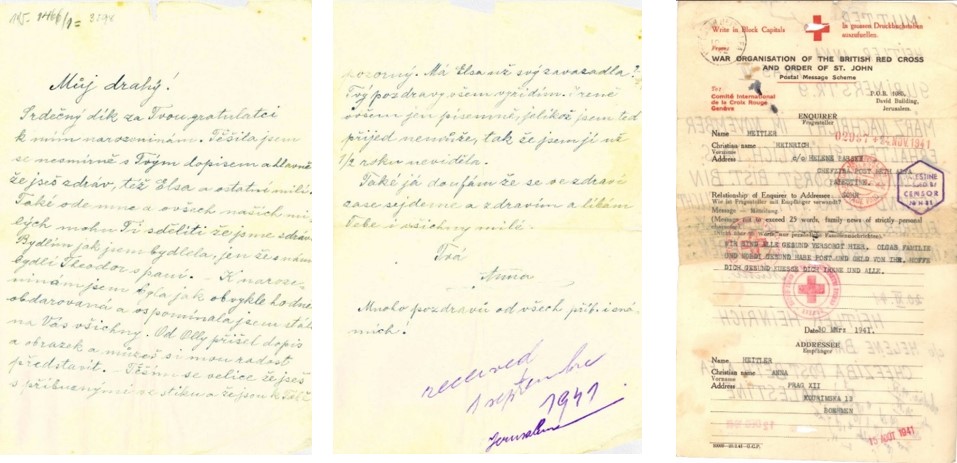 Můj drahý!
Srdečný dík za Tvou gratulaci
k mým narozeninám. Těšila jsem
se nesmírně s Tvým dopisem a hlavně
že jseš zdráv, též Elsa a ostatní milé.
Také ode mne a všech našich mi-
lých mohu Ti sděliti že jsme zdrávi.
Bydlím jak jsem bydlela, jen že s námi
bydlí Theodor s paní. - K naroze-
ninám jsem byla jak obvykle hodně
obdarovaná a vspomínala jsem stále
na Vás všichny. Od Olly přišel dopis
a obrazek a můžeš si mou radost
představit. - Těším se velice že jseš
s příbuznými ve stiku a že jsou k Tobě
pozorný. Má Elsa už svý zavazadla?
Tvý pozdravy všem vyřídím. Ireně
ovšem jen písemně, jelikož jsem teď
přijed nemůže, tak že jsem jí už
1/2 roku neviděla.
Také já doufám že se ve zdraví
zase sejdeme a zdravím a líbám
Tebe i všichny milé.
Tvá
Anna
Mnoho pozdravů od všech příb. i zná-
mých!
received
1 septembre
1941
Jerusalem
Write in Block Capitals
In grossen Druckbuchstaben
auszufuellen.
From:
WAR ORGANISATION OF THE BRITISH RED CROSS
AND ORDER OF ST. JOHN
Postal Message Scheme
To:
Comité International
de la Croix Rouge
Genève
P.O.B. 1085,
David Building,
Jerusalem.
ENQUIRER
Fragesteller
Name HEITLER
Christian name HEINRICH
Vorname
Address c/o HELENE
CHEFZIBA POST BETH ALFA
PALESTINE.
PALESTINE
CENSOR
Relationship of Enquirer to Addressee SOHN
Wie ist Fragesteller mit Empfänger verwandt?
Message - Mitteilung
(Message not to exceed 25 words, family news of strictly personal
character)
WIR SIND ALLE GESUND VERSORGT HIER. OLGAS FAMILIE
UND GESUND HABE POST UND GELD VON IHR. HOFFE
DICH GESUND KUESSE DICH IRENE UND ALLE.
Date 20 März 1941.
ADDRESSEE
Empfänger
Name HEITLER
Christian name ANNA
Vorname
Address PRAG XII
KOURIMSKA 12
BOEHMEN
15 AOUT 1941